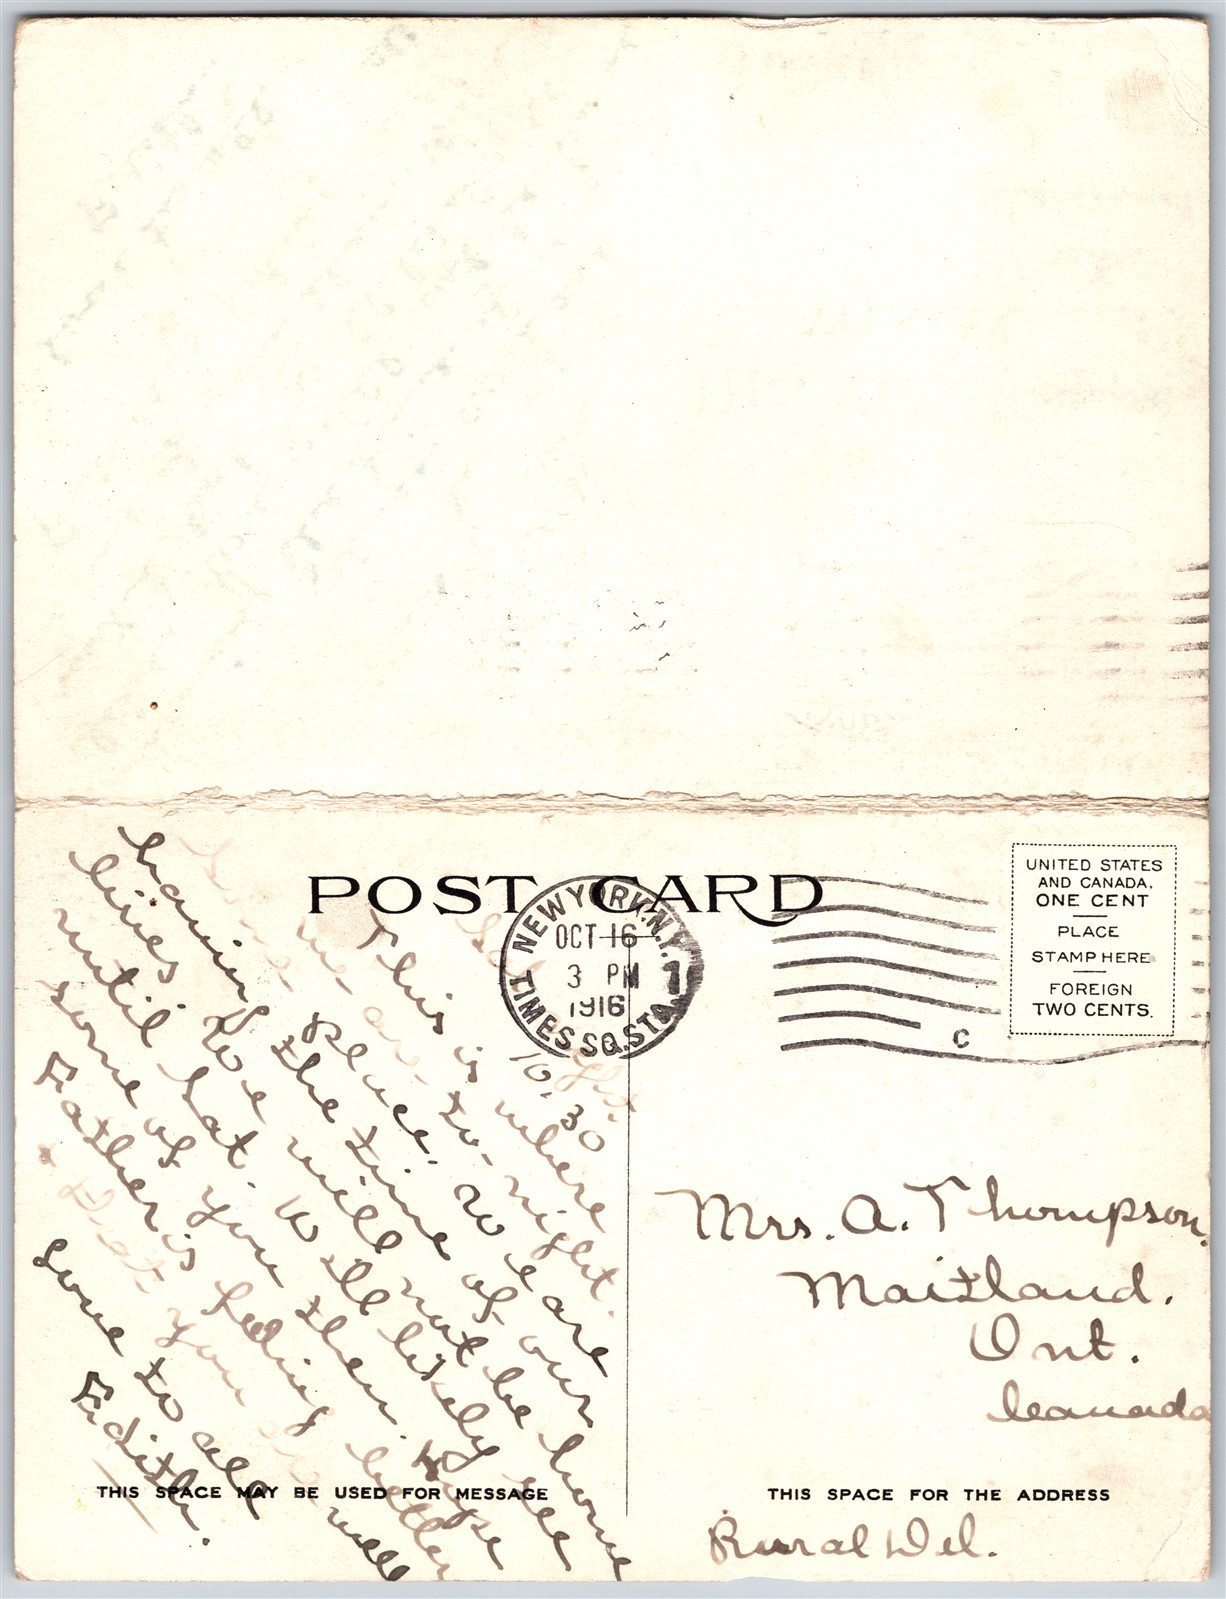 POST CARD
NEW YORK, N.Y.
OCT 16
3 PM
1916
TIMES SQ. STA.
1
C
UNITED STATES
AND CANADA.
ONE CENT
PLACE
STAMP HERE
FOREIGN
TWO CENTS.
10.30
This is where
we are to-night.
Some place. We are
having the time of our
lives. We will not be home
until Sat. Will likely see
some of you then. Hope
Father is feeling better
you are well
Love to all
Edith.
THIS SPACE MAY BE USED FOR MESSAGE
Mrs. A. Thompson.
Maitland.
Ont.
Canada
THIS SPACE FOR THE ADDRESS
Rural Del.